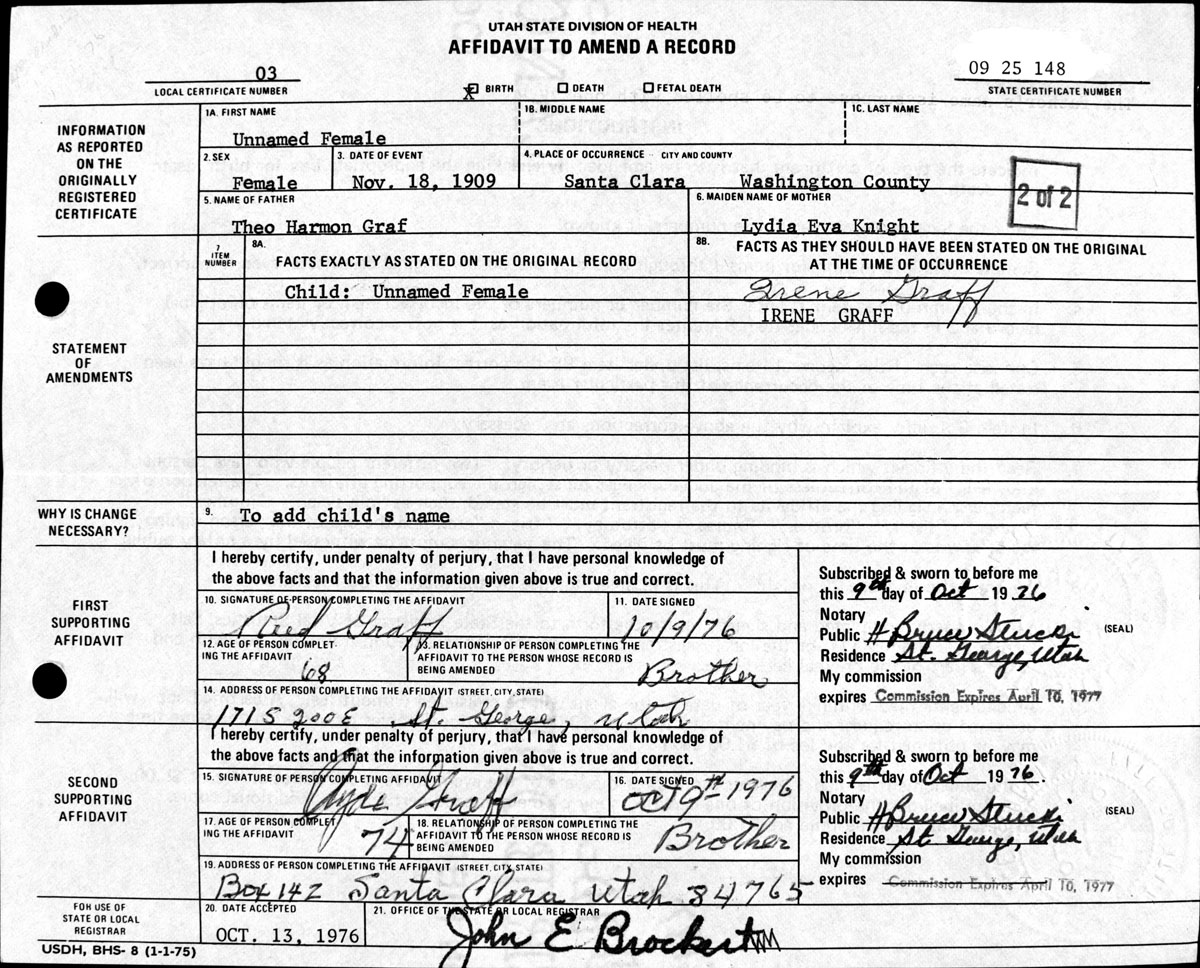 UTAH STATE DIVISION OF HEALTH
AFFIDAVIT TO AMEND A RECORD
03
LOCAL CERTIFICATE NUMBER
X BIRTH DEATH FETAL DEATH
09 25 148
STATE CERTIFICATE NUMBER
INFORMATION
AS REPORTED
ON THE
ORIGINALLY
REGISTERED
CERTIFICATE
1A. FIRST NAME
1B. MIDDLE NAME
1C. LAST NAME
Unnamed Female
2. SEX
3. DATE OF EVENT
4. PLACE OF OCCURRENCE - CITY AND COUNTY
Female
Nov. 18, 1909
Santa Clara Washington County
2 of 2
5. NAME OF FATHER
6. MAIDEN NAME OF MOTHER
Theo Harmon Graf
Lydia Eva Knight
STATEMENT
OF
AMENDMENTS
7
ITEM
NUMBER
8A.
FACTS EXACTLY AS STATED ON THE ORIGINAL RECORD
8B.
FACTS AS THEY SHOULD HAVE BEEN STATED ON THE ORIGINAL
AT THE TIME OF OCCURRENCE
Child: Unnamed Female
Irene Graff
IRENE GRAFF
WHY IS CHANGE
NECESSARY?
9.
To add child's name
FIRST
SUPPORTING
AFFIDAVIT
I hereby certify, under penalty of perjury, that I have personal knowledge of
the above facts and that the information given above is true and correct.
10. SIGNATURE OF PERSON COMPLETING THE AFFIDAVIT
11. DATE SIGNED
Reed Graff
10/9/76
12. AGE OF PERSON COMPLET-
ING THE AFFIDAVIT
68
13. RELATIONSHIP OF PERSON COMPLETING THE
AFFIDAVIT TO THE PERSON WHOSE RECORD IS
BEING AMENDED
Brother
14. ADDRESS OF PERSON COMPLETING THE AFFIDAVIT (STREET, CITY, STATE)
171 S 200 E St. George, Utah
Subscribed & sworn to before me
this 9th day of Oct 1976
Notary
Public H Bruce Stucki (SEAL)
Residence St. George, Utah
My commission
expires Commission Expires April 10, 1977
SECOND
SUPPORTING
AFFIDAVIT
I hereby certify, under penalty of perjury, that I have personal knowledge of
the above facts and that the information given above is true and correct.
15. SIGNATURE OF PERSON COMPLETING AFFIDAVIT
16. DATE SIGNED
Clyde Graff
OCT 9th 1976
17. AGE OF PERSON COMPLET
ING THE AFFIDAVIT
74
18. RELATIONSHIP OF PERSON COMPLETING THE
AFFIDAVIT TO THE PERSON WHOSE RECORD IS
BEING AMENDED
Brother
19. ADDRESS OF PERSON COMPLETING THE AFFIDAVIT (STREET, CITY, STATE)
Box 142 Santa Clara Utah 84765
Subscribed & sworn to before me
this 9th day of Oct 1976.
Notary
Public H Bruce Stucki (SEAL)
Residence St. George, Utah
My commission
expires Commission Expires April 10, 1977
FOR USE OF
STATE OR LOCAL
REGISTRAR
20. DATE ACCEPTED
OCT. 13, 1976
21. OFFICE OF THE STATE OR LOCAL REGISTRAR
John E Brockert
USDH, BHS- 8 (1-1-75)